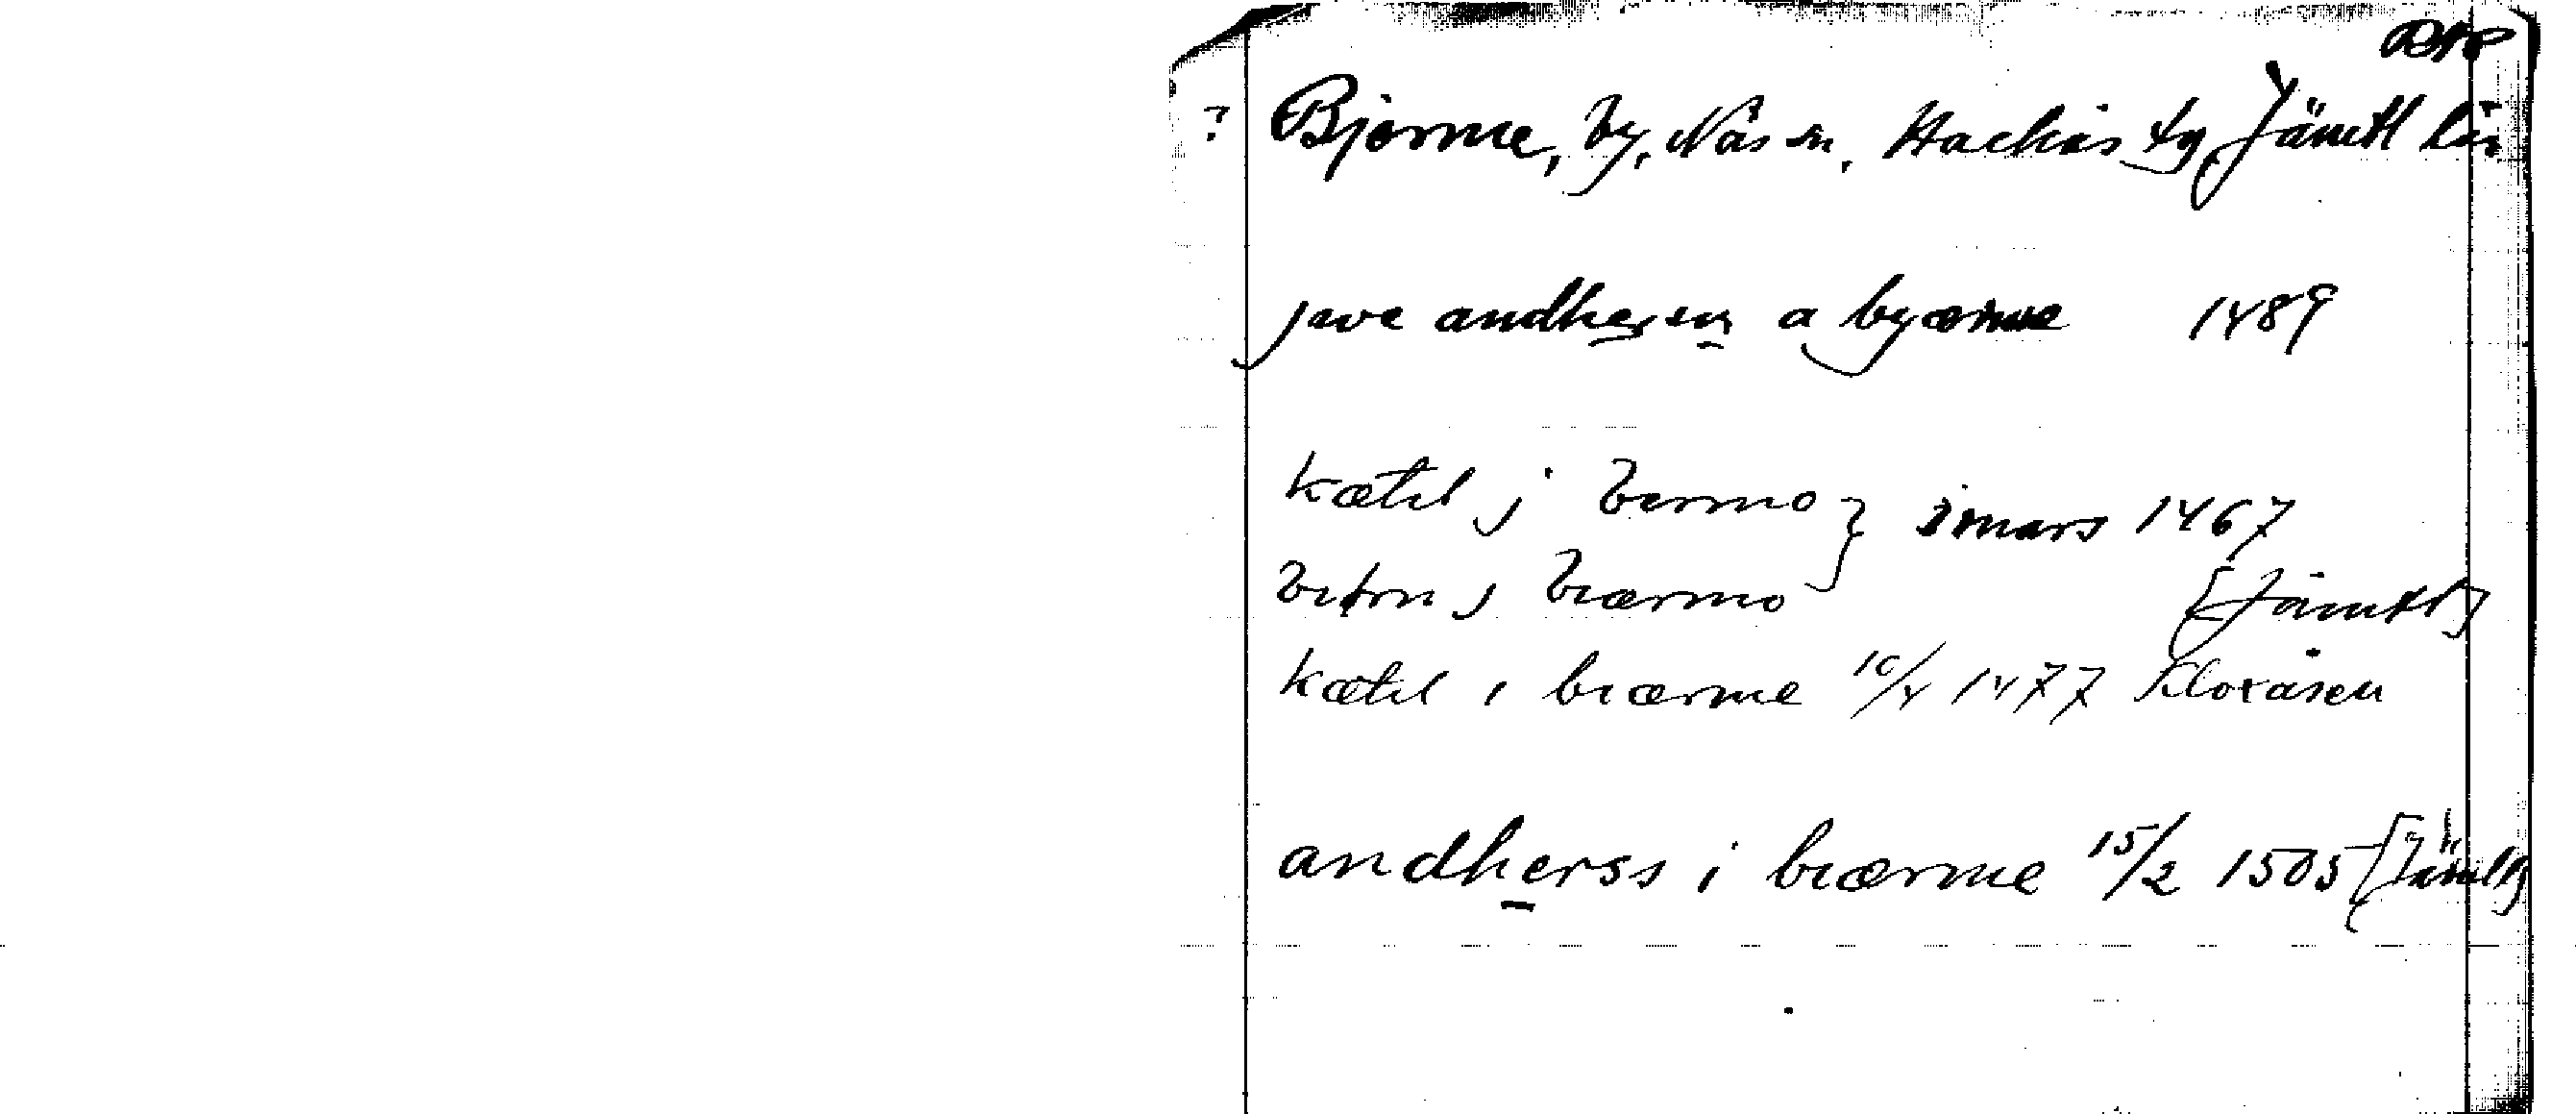 ? Bjärme, by, Näs sn, Hackås tg Jämtl län
jwe andhersen a byærme 1489
kætil j bermo } i mars 1467
biørn j biærmo [Jämtl]
kætil i biærme 10/4 1477 Kloxåsen
andherss i biærme 15/2 1505 [Jämtl]